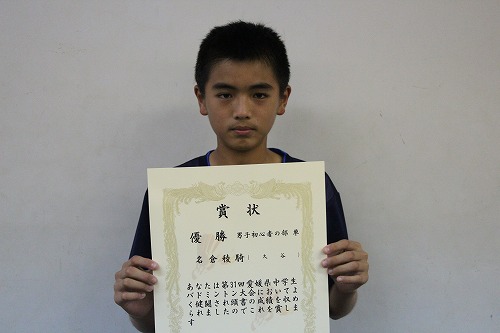 賞状
優勝 男子初心者の部 単
名倉稜騎(大谷)
あなたは第31回愛媛県中学生
バドミントン大会においてよ
く健闘され頭書の成績を収め
られましたのでこれを賞しま
す